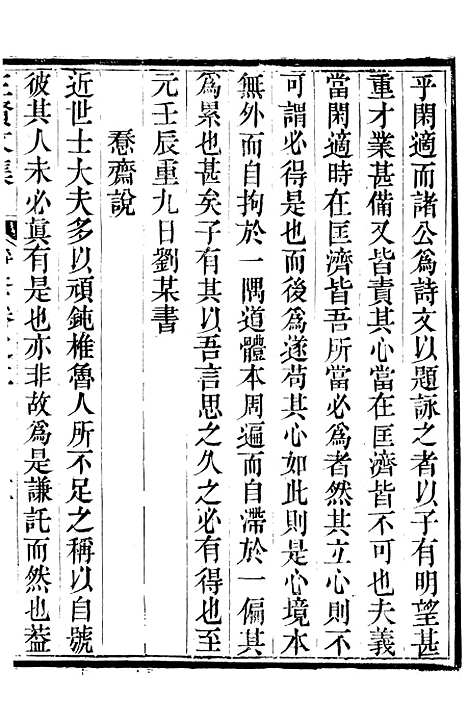 乎閑適而諸公爲詩文以題詠之者以子有明望甚
重才業甚備又皆責其心當在匡濟皆不可也夫義
當閑適時在匡濟皆吾所當必爲者然其立心則不
可謂必得是也而後爲遂苟其心如此則是心境本
無外而自拘於一隅道體本周遍而自滯於一偏其
爲累也甚矣子有其以吾言思之久之必有得也至
元壬辰重九日劉某書
惷齋說
近世士大夫多以頑鈍椎魯人所不足之稱以自號
彼其人未必眞有是也亦非故爲是謙託而然也葢
三賢文集